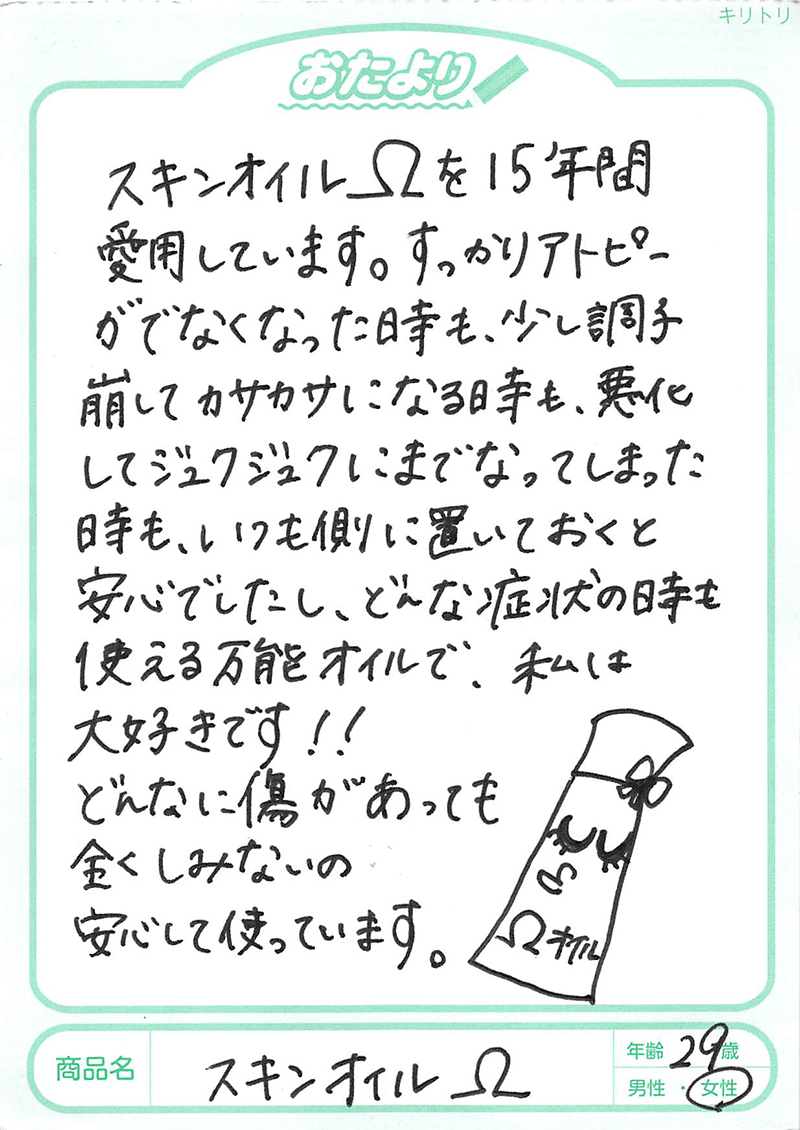 キリトリ
おたより
スキンオイルΩを15年間
愛用しています。すっかりアトピー
がでなくなった時も、少し調子
崩してカサカサになる時も、悪化
してジュクジュクにまでなってしまった
時も、いつも側に置いておくと
安心でしたし、どんな症状の時も
使える万能オイルで、私は
大好きです!!
どんなに傷があっても
全くしみないの
安心して使っています。
Ωオイル
商品名
スキンオイルΩ
年齢 29歳
男性・女性